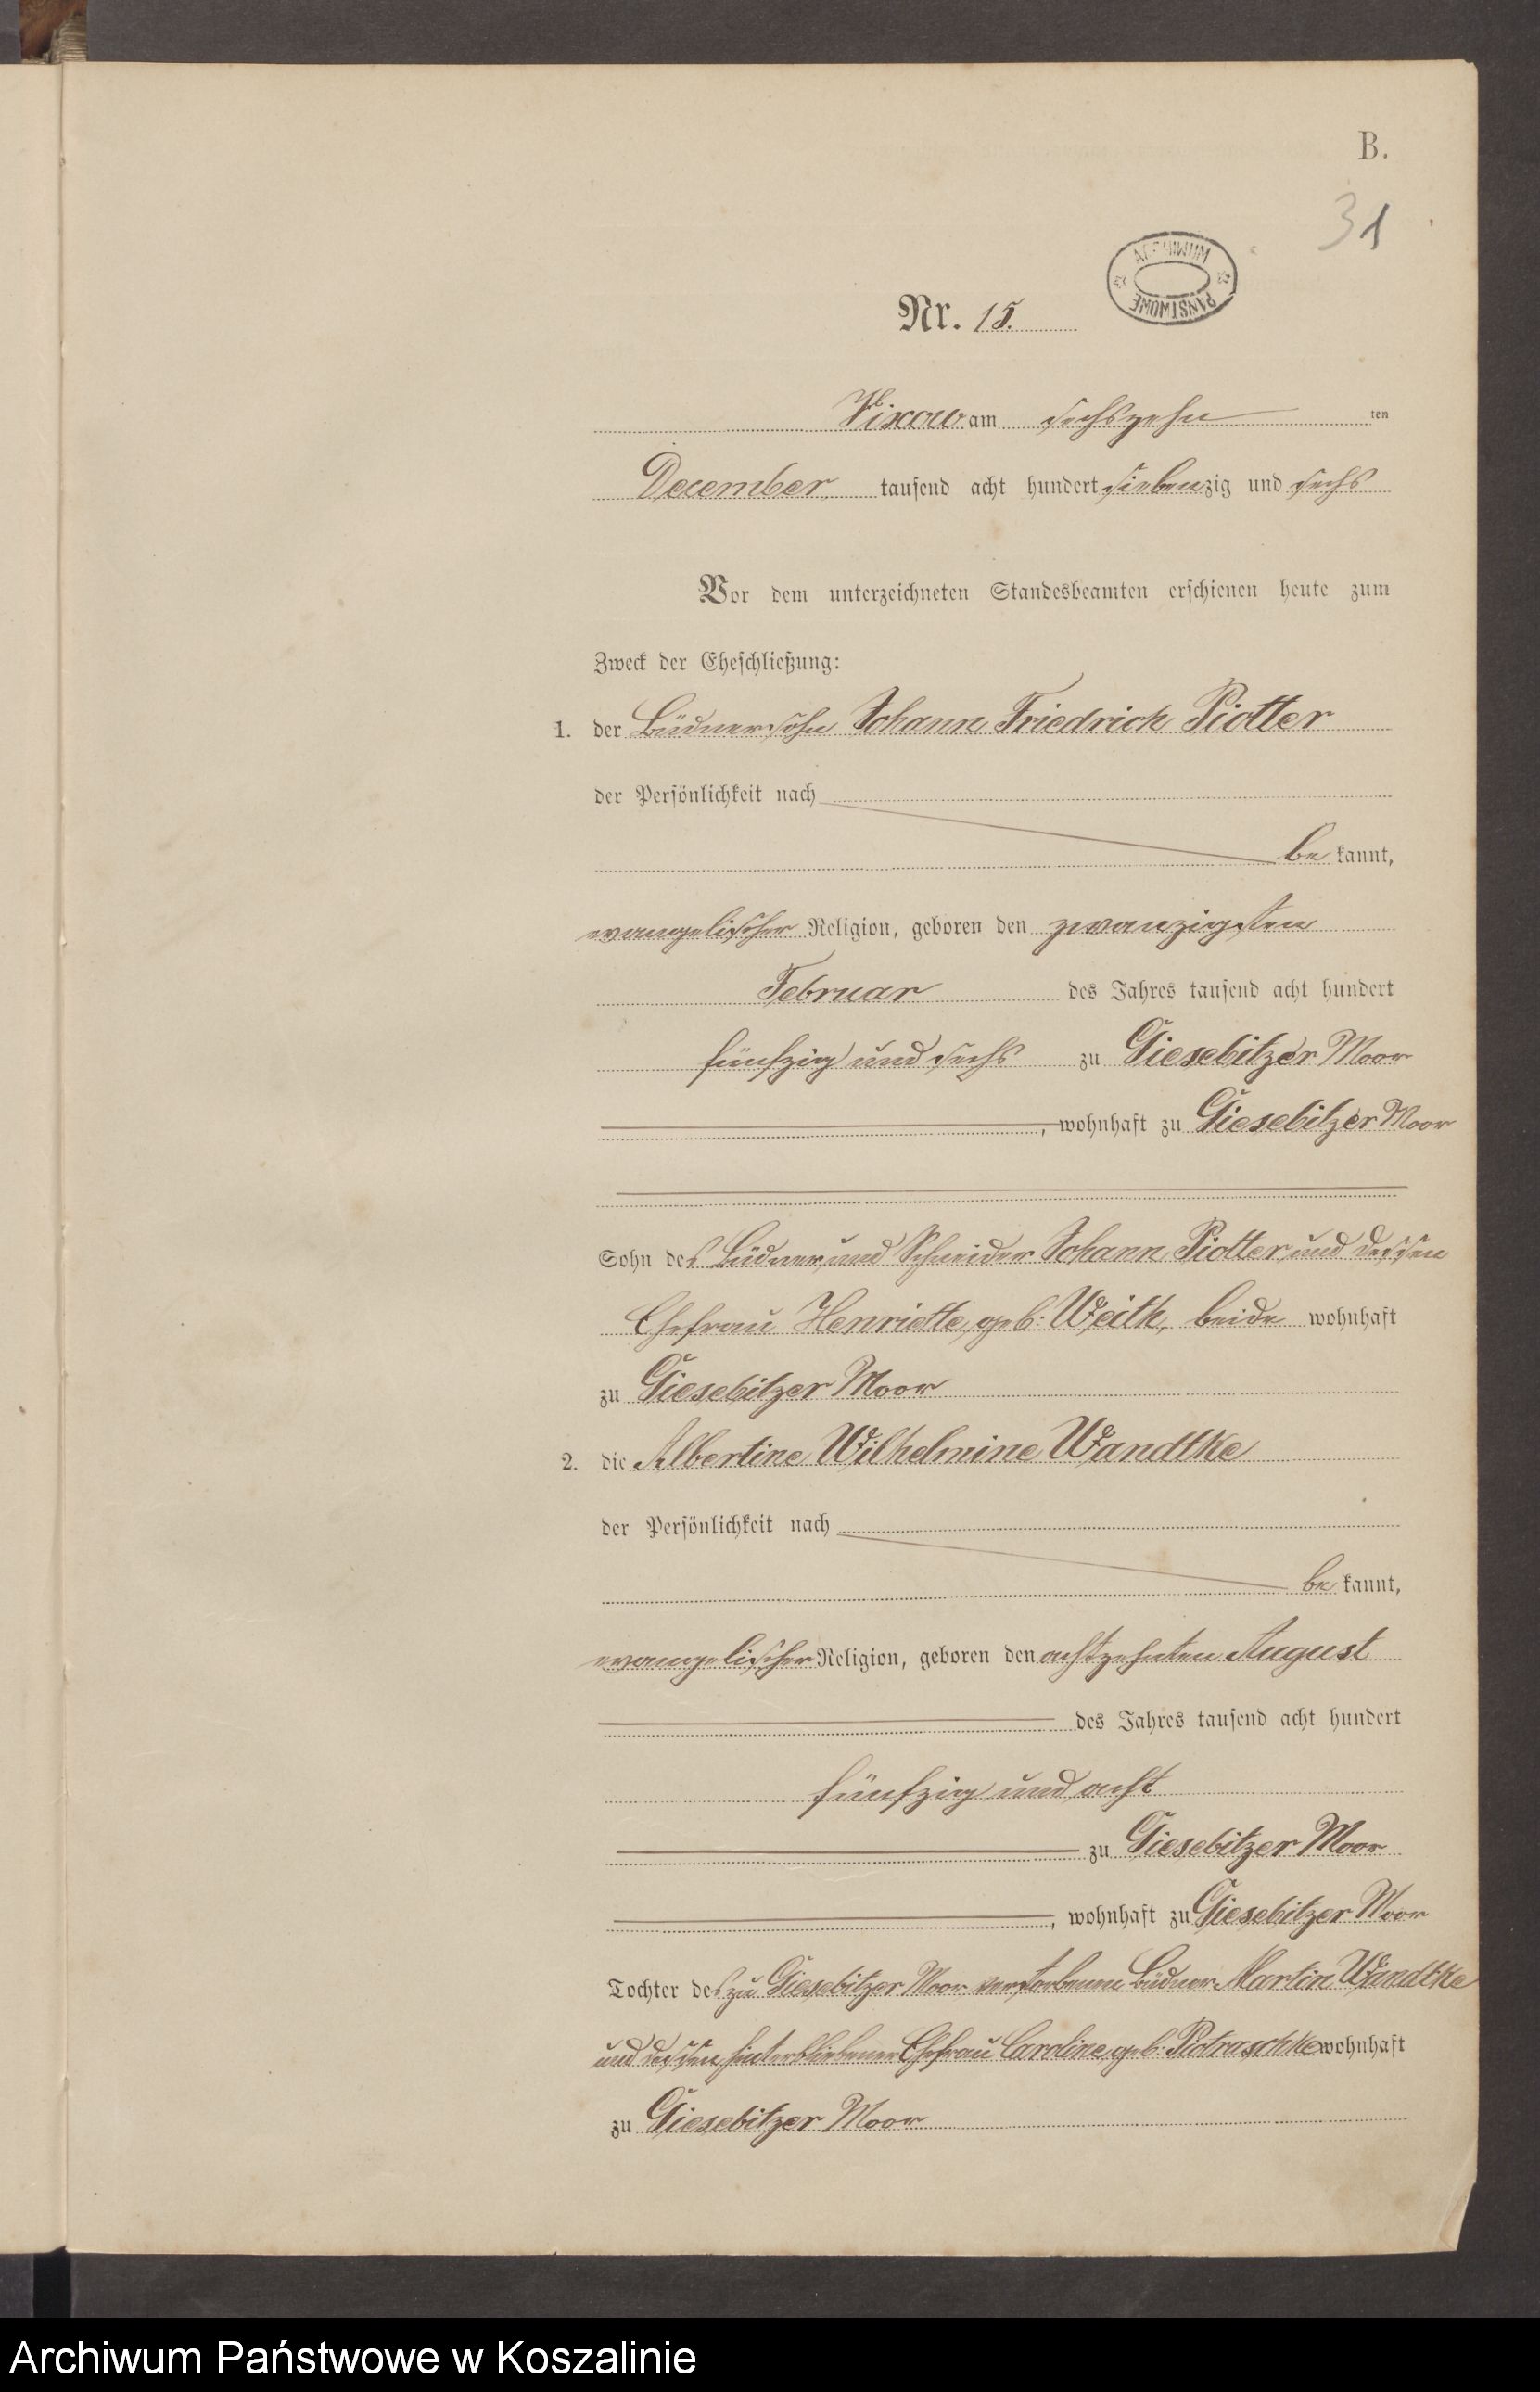 B.
31
ARCHIWUM PAŃSTWOWE
Nr. 15.
Vixow am sechszehn ten
December tausend acht hundert siebenzig und sechs
Vor dem unterzeichneten Standesbeamten erschienen heute zum
Zweck der Eheschließung:
1. der Büdnersohn Johann Friedrich Piotter
der Persönlichkeit nach
be kannt,
evangelischer Religion, geboren den zwanzigsten
Februar des Jahres tausend acht hundert
fünfzig und sechs zu Giesebitzer Moor
, wohnhaft zu Giesebitzer Moor
Sohn des Büdner und Schneider Johann Piotter und dessen
Ehefrau Henriette, geb: Weith, beide wohnhaft
zu Giesebitzer Moor
2. die Albertine Wilhelmine Wandtke
der Persönlichkeit nach
be kannt,
evangelischer Religion, geboren den achtzehnten August
des Jahres tausend acht hundert
fünfzig und acht
zu Giesebitzer Moor
, wohnhaft zu Giesebitzer Moor
Tochter des zu Giesebitzer Moor verstorbenen Büdner Martin Wandtke
und dessen hinterbliebener Ehefrau Caroline, geb: Piotraschke wohnhaft
zu Giesebitzer Moor
Archiwum Państwowe w Koszalinie